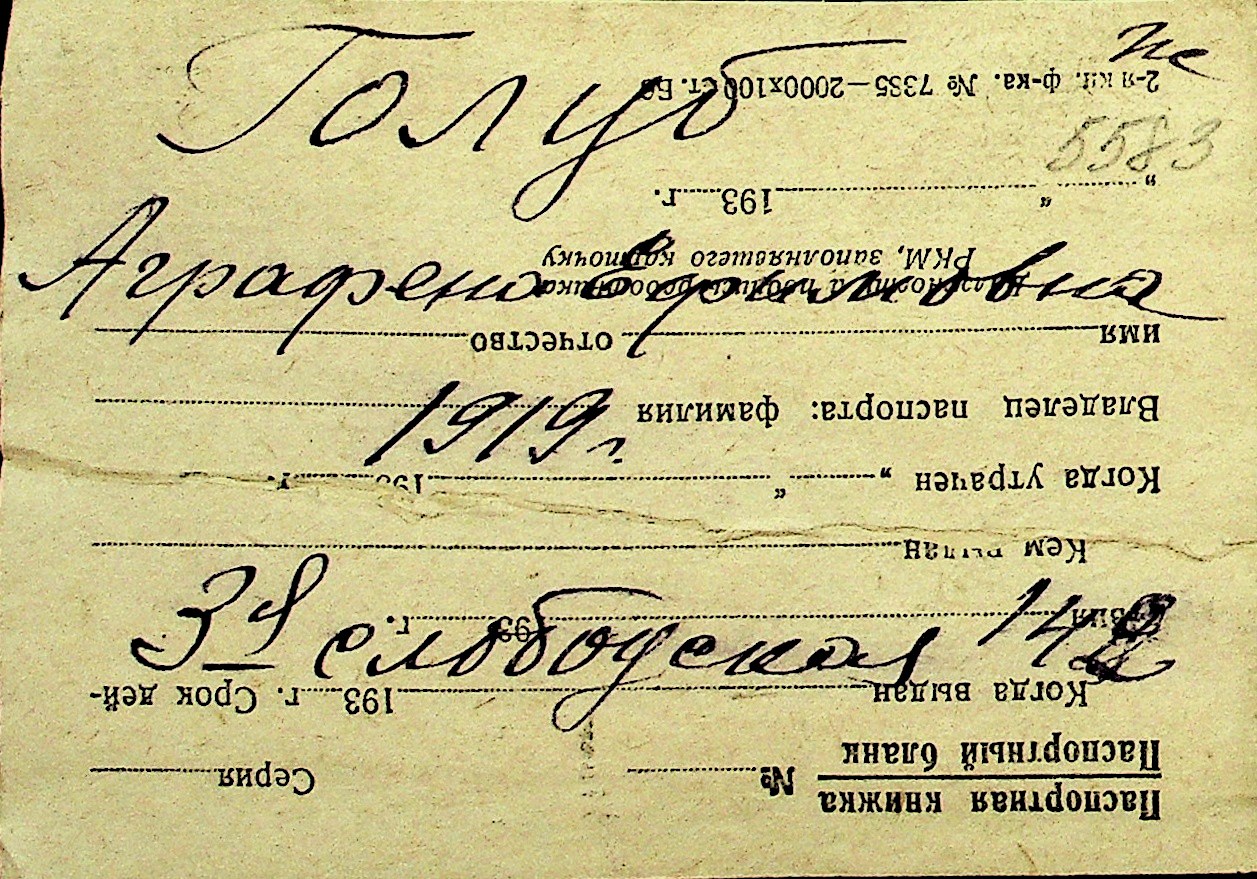 Голуб
5583
Аграфена Ефимовна
1919 г.
3я слободская 142
Паспортная книжка
Паспортный бланк № Серия
Когда выдан 193 г. Срок дей-
ствия 193 г.
Кем выдан
Когда утрачен „ “ 193 г.
Владелец паспорта: фамилия
имя отчество
Должность и подпись работника
РКМ, заполнявшего карточку
„ “ 193 г.
2-я кн. ф-ка. № 7385—2000х100 ст.